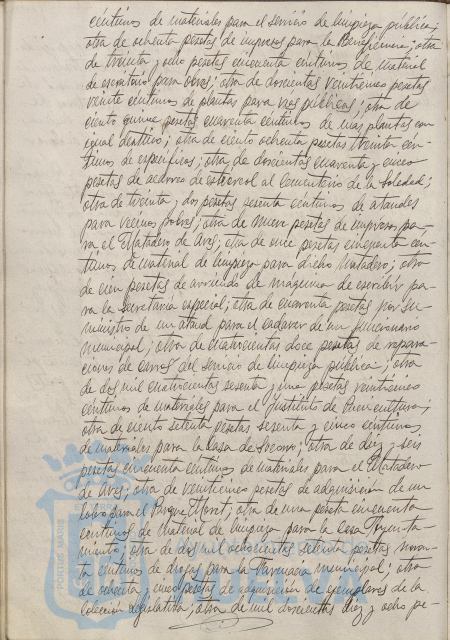 céntimos de materiales para el servicio de limpieza pública;
otra de ochenta pesetas de impresos para la Beneficencia; otra
de treinta y ocho pesetas cincuenta céntimos de material
de escritorio para obras; otra de doscientas veintitres pesetas
veinte céntimos de plantas para vias públicas; otra de
ciento quince pesetas cuarenta céntimos de mas plantas con
igual destino; otra de ciento ochenta pesetas treinta cén-
timos de específicos; otra de doscientas cuarenta y cinco
pesetas de acarreo de estiercol al Cementerio de la Soledad;
otra de treinta y dos pesetas sesenta céntimos de ataudes
para vecinos pobres; otra de nueve pesetas de impresos pa-
ra el Matadero de Aves; otra de once pesetas cincuenta cén-
timos de material de limpieza para dicho Matadero; otra
de cien pesetas de arriendo de máquina de escribir pa-
ra la Secretaría especial; otra de cuarenta pesetas por su-
ministro de un ataud para el cadaver de un funcionario
municipal; otra de cuatrocientas doce pesetas de repara-
ciones de carros del servicio de limpieza pública; otra
de dos mil cuatrocientas sesenta y una pesetas veinticinco
céntimos de materiales para el Instituto de Puericultura;
otra de ciento setenta pesetas sesenta y cinco céntimos,
de materiales para la Casa de Socorro; otra de diez y seis
pesetas cincuenta céntimos de materiales para el Matadero
de Aves; otra de veinticinco pesetas de adquisición de un
lobo para el Parque Moret; otra de una peseta cincuenta
céntimos de material de limpieza para la Casa Ayunta-
miento; otra de dos mil ochocientas setenta pesetas nove-
ta céntimos de drogas para la Farmacia municipal; otra
de ochenta y cinco pesetas de adquisición de ejemplares de la
Colección legislativa; otra de mil doscientas diez y ocho pe-
PORTUS MARIS
HUELVA